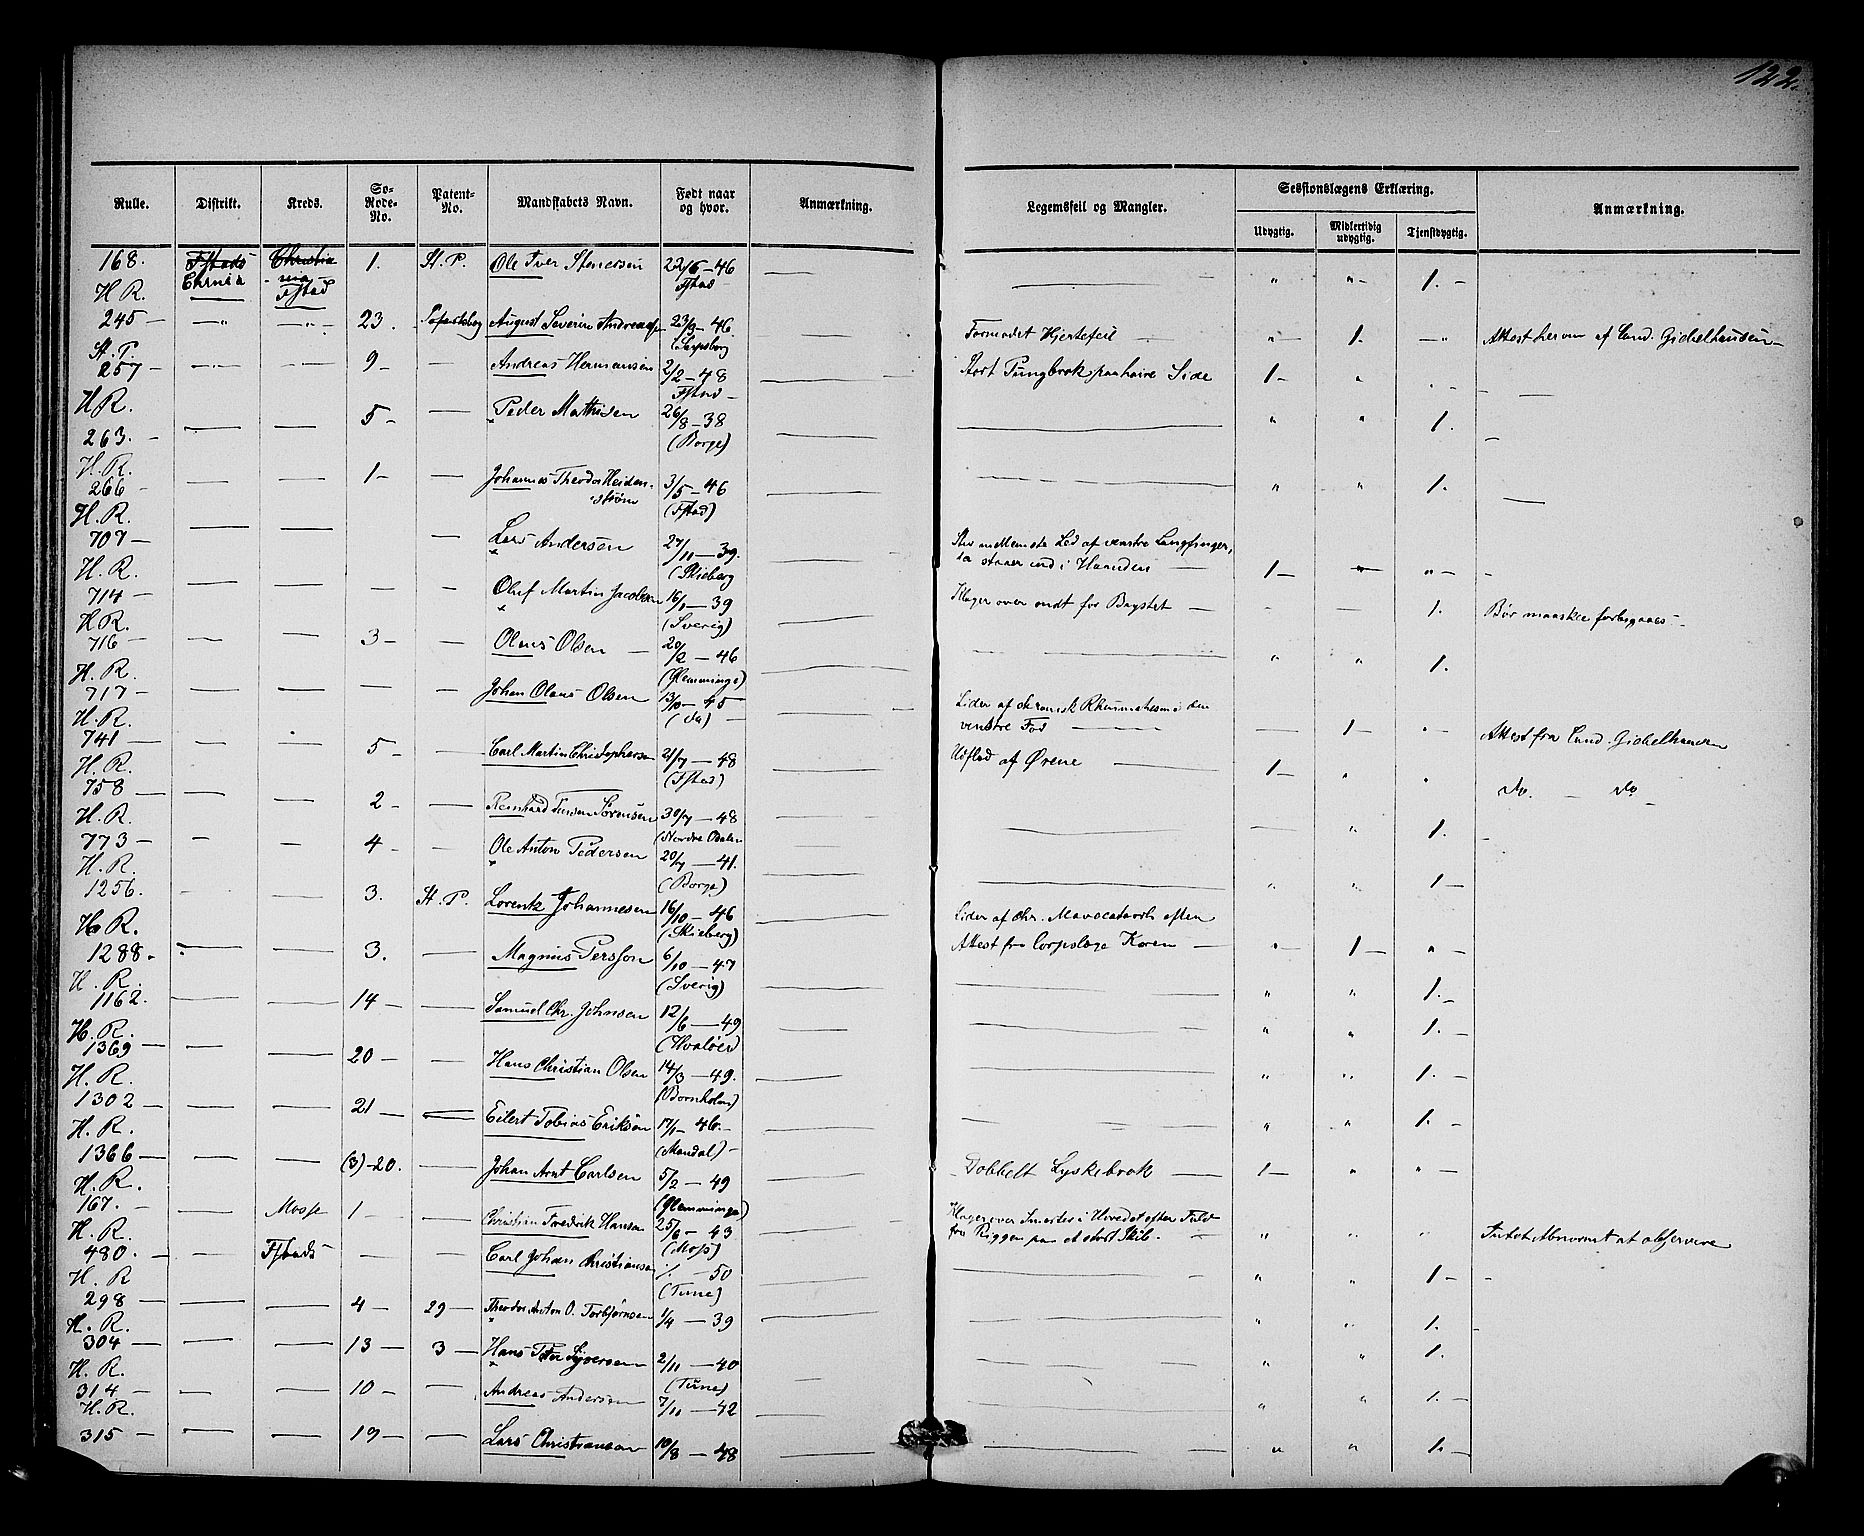 122.
Rulle. Distrikt. Kreds. So-Rode-No. Patent-No. Mandskabets Navn. Født naar og hvor. Anmærkning. Legemsfeil og Mangler. Sessionslægens Erklæring. Anmærkning.
Udygtig. Midlertidig udygtig. Tjenstdygtig.
168. Fstads Christia 1. St. P. Ole Iver Stenersen 22/6 – 46 — „ „ 1. –
H R. Chrnia nia Fstad Fstad
245 – — „ — „ 23. August Severin Andreas 23/9 – 46. Formodet Hjertefeil — „ 1. „ Attest herom af Cand. Gickelhausen –
St. P. Sarpsborg
257 – — — 9 – — Andreas Hermansen 2/2 – 48 — Stort Pungbrok paa høire Side 1 – „ „ —
H R. Fstad –
5 – — Peder Mathisen 26/8 – 38
263. – — — (Borge) — „ „ 1. –
H. R.
266 – — — 1 – — Johannes Theodor Heiden- 3/5 – 46 — „ „ 1. —
strøm (Fstad)
H. R.
707 – — — — Lars Andersen 27/11 – 39. — Stiv mellemste Led af venstre Langfinger,
H. R. (Skieberg der staaer ind i Haanden — 1 – „ „ –
714 – — — — — Oluf Martin Jacobsen 16/1 – 39 Klager over ondt for Brystet — – — 1. Bør maaskee forbigaaes –
H R. (Sverig)
716 – — — 3 – — Olaus Olsen — 20/2 – 46 — „ „ 1.
H. R. (Glemminge)
717 – — — — — Johan Olaus Olsen 13/10 – 45 — Lider af chronisk Rheumatisme i den
H. R. (da) – venstre Fod — — 1 – „ – Attest fra Cand. Gickelhausen
741 – — 5 – — Carl Martin Christophersen 21/7 – 48 — Udflod af Ørene — 1 – „ „ do. – do –
H. R. (Fstad)
758 – — — 2 – — Sørensen 30/7 – 48 — — „ 1. –
H. R. (Nordre Odalen
773 – — — 4 – — Ole Anton Pedersen 20/7 – 41. — „ „ 1 –
H. R. (Borge)
1256. – — 3. St. P. Lorentz Johannesen 16/10 – 46 — Lider af chr. Mavecatarrh efter
H R. (Skieberg) Attest fra Corpslæge Koren — „ – 1 – „
1288 – — — 3. — Magnus Persson 6/10 – 47
H. R. (Sverig) — „ „ 1. –
1162. — — 14 – — Samuel Chr. Johnsen 12/6 – 49 — „ „ 1. –
H. R. (Hvaløer)
1369 – — — 20 – — Hans Christian Olsen 14/3 – 49. — „ „ 1. –
H. R. (Bornholm)
1302 – — — 21 – — Eilert Tobias Eriksen 17/1 – 46. – — „ „ 1. –
H. R. (Mandal) –
1366 – — — (3) – 20. — Johan Arnt Carlsen 5/2 – 49 — Dobbelt Lyskebrok — 1 – „ „ –
H. R. (Glemminge)
167. – — Mosse 1 – — Christian Fredrik Hansen 25/6 – 43 — Klager over Smerter i Hovedet efter Fald
H. R. (Moss) fra Riggen paa et stort Skib. – „ „ „ Intet Abnormt at observere
480. – — Fstads — — Carl Johan Christiansen 1/1 – 50 — „ „ 1 – –
H. R (Tune)
298 – — — 4 – 29 – Theodor Anton O. Torbjørnsen 1/4 – 39 — „ „ 1. –
H. R.
304 – — — 13 – 3 – Hans Peter Syversen 2/11 – 40 — „ „ 1.
H. R. (Tune)
314 – — — 10 – — Andreas Andersen 7/11 – 42 — „ „ 1. –
H. R.
315 – — — 19 – — Lars Christiansen 10/8 – 48 — „ „ 1. –